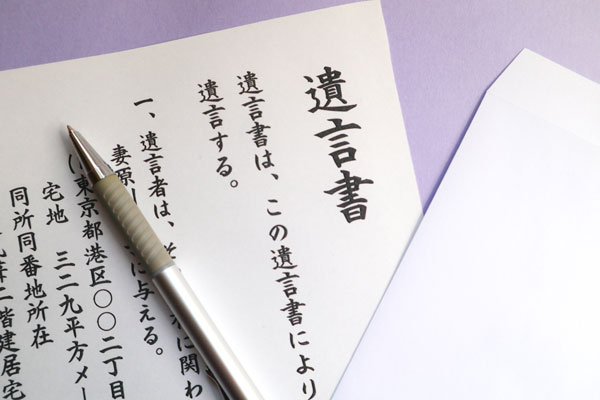 遺言書
遺言書は、この遺言書により
遺言する。
一、遺言者は、そ に関わ
妻原 に与える。
(東京都港区〇〇二丁目
宅地 三二九平方メー
同所同番地所在
二階建居宅